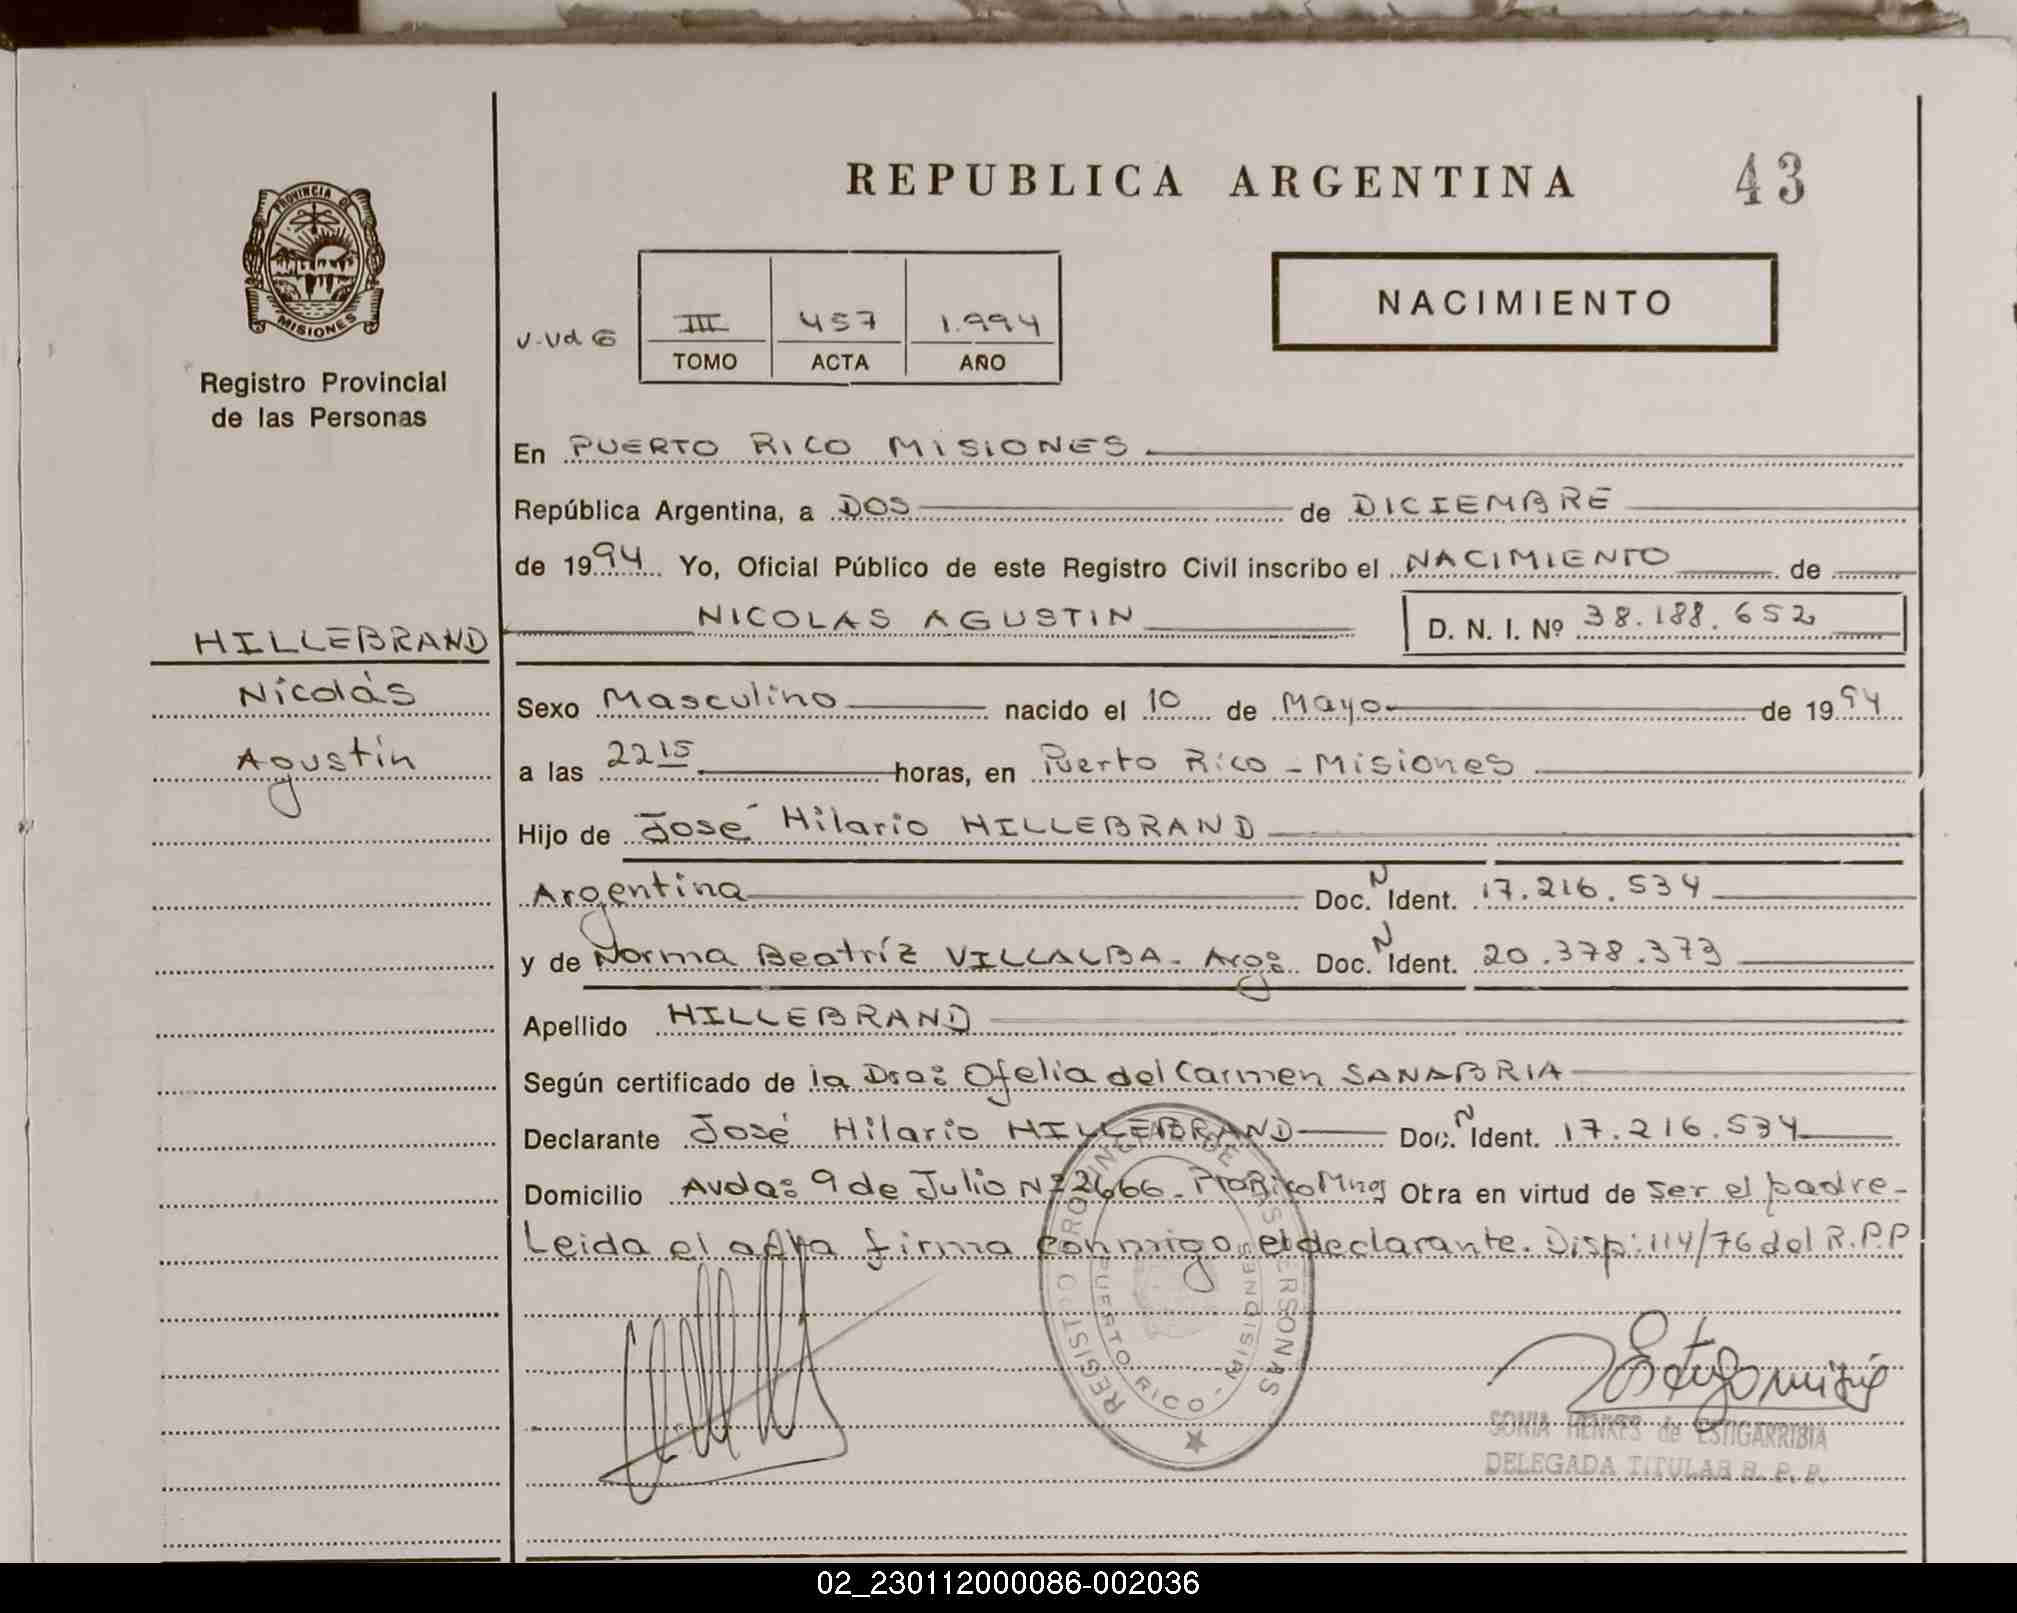 REPUBLICA ARGENTINA 43
PROVINCIA DE
MISIONES
Registro Provincial
de las Personas
NACIMIENTO
III 457 1.994
TOMO ACTA AÑO
En PUERTO RICO MISIONES
República Argentina, a DOS de DICIEMBRE
de 1994 Yo, Oficial Público de este Registro Civil inscribo el NACIMIENTO de
NICOLAS AGUSTIN D. N. I. Nº 38.188.652
HILLEBRAND
Nicolás
Agustín
Sexo Masculino nacido el 10 de Mayo de 1994
a las 22 15 horas, en Puerto Rico - Misiones
Hijo de José Hilario HILLEBRAND
Argentina Doc. N Ident. 17.216.534
y de Norma Beatríz VILLALBA - Arg: Doc. N Ident. 20.378.373
Apellido HILLEBRAND
Según certificado de la Dra: Ofelia del Carmen SANABRIA
Declarante José Hilario HILLEBRAND Doc. N Ident. 17.216.534
Domicilio Avda: 9 de Julio Nº 2666 - Pto Rico Mnes Obra en virtud de ser el padre -
Leida el acta firma conmigo el declarante. Disp: 114/76 del R.P.P
REGISTRO PROVINCIAL DE LAS PERSONAS
PUERTO RICO - MISIONES
SONIA HENKES de ESTIGARRIBIA
DELEGADA TITULAR R. P. P.
02_230112000086-002036